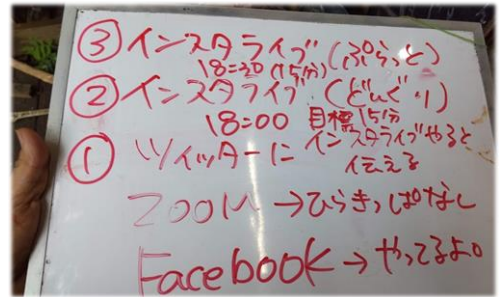 ③インスタライブ(ぷらっと)
18:30(15分)
②インスタライブ(どんぐり)
18:00 目標15分
①ツイッターにインスタライブやると
伝える
ZOOM→ひらきっぱなし
Facebook→やってるよ。